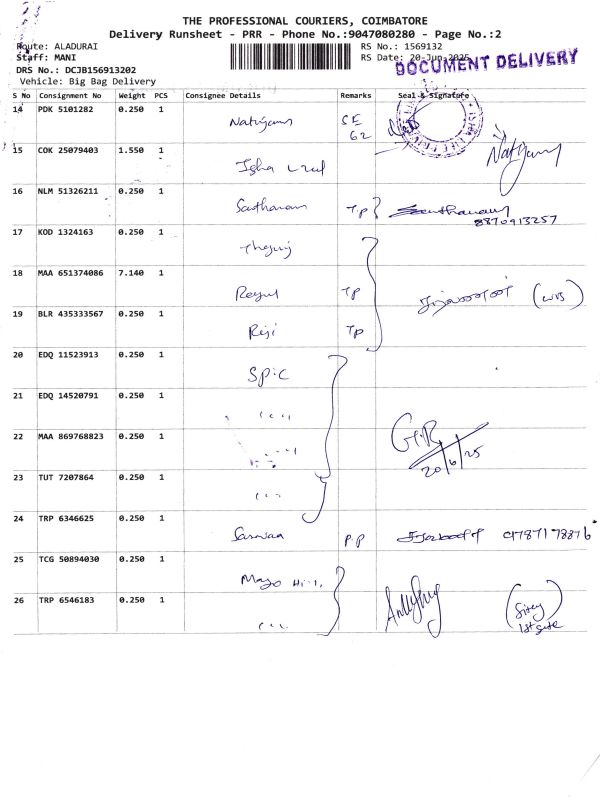 THE PROFESSIONAL COURIERS, COIMBATORE
Delivery Runsheet - PRR - Phone No.:9047080280 - Page No.:2
Route: ALADURAI RS No.: 1569132
Staff: MANI RS Date: 20-Jun-2025
DOCUMENT DELIVERY
DRS No.: DCJB156913202
Vehicle: Big Bag Delivery
S No Consignment No Weight PCS Consignee Details Remarks Seal & Signature
14 PDK 5101282 0.250 1 62
15 COK 25079403 1.550 1 Isha
16 NLM 51326211 0.250 1 Santhanam TP Santhanam
8870913257
17 KOD 1324163 0.250 1
18 MAA 651374086 7.140 1 TP
19 BLR 435333567 0.250 1 Riji TP
20 EDQ 11523913 0.250 1 SPIC
21 EDQ 14520791 0.250 1 ,,,,
22 MAA 869768823 0.250 1
20/6/25
23 TUT 7207864 0.250 1 ,,,
24 TRP 6346625 0.250 1 PP 9787178876
25 TCG 50894030 0.250 1
26 TRP 6546183 0.250 1 ,,,
1st gate